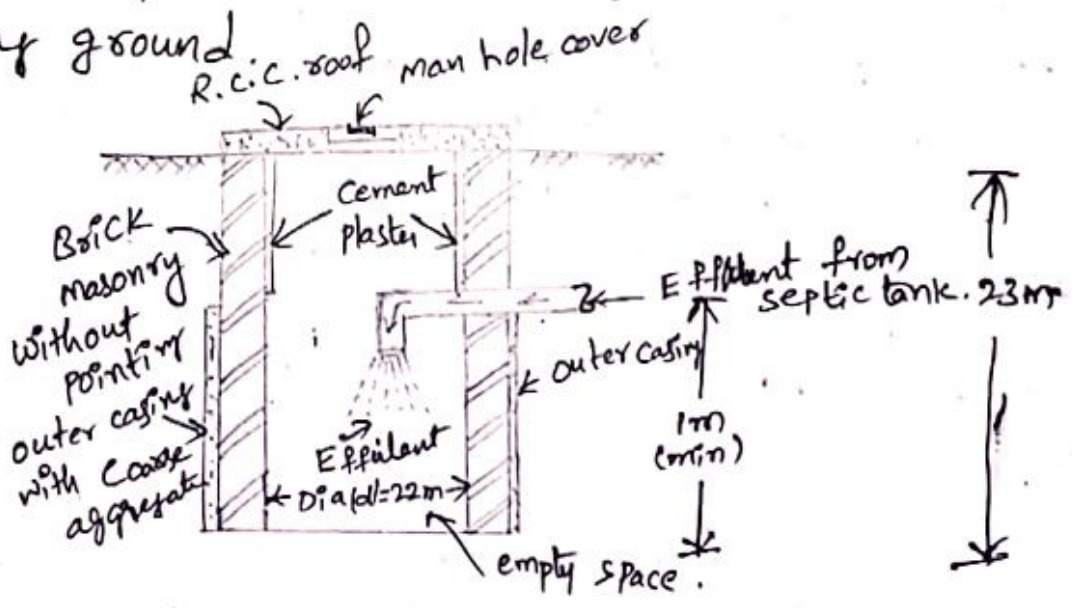 y ground
R.c.c. roof
man hole cover
Cement
plaster
Brick
masonry
without
pointing
outer casing
with Coarse
aggregate
Effulent from
septic tank.
23m
outer casing
1m
(min)
Effulent
Dia(d)=22m
empty space.